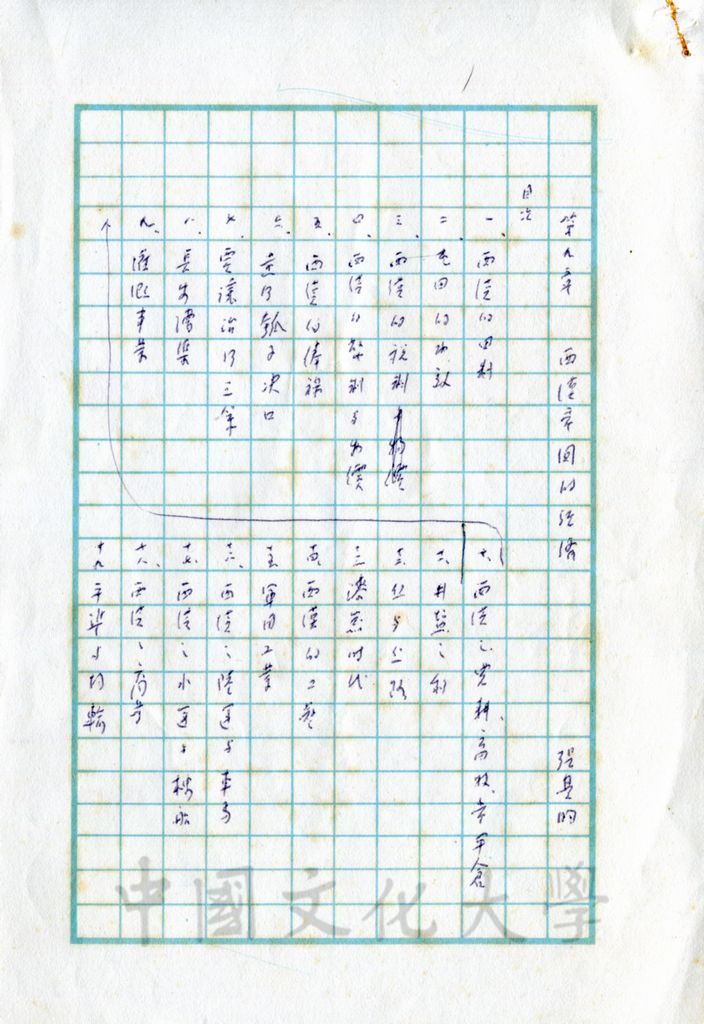 第九章 西漢帝國的經濟 張其昀
目次
一、西漢的田制
二、屯田的功效
三、西漢的稅制
四、西漢的幣制與物價
五、西漢的俸祿
六、黃河瓠子決口
七、賈讓治河三策
八、長安漕渠
九、灌溉事業
十、西漢之農耕、畜牧、與平倉
十一、井鹽之利
十二、絲與絲路
十三、漆器時代
十四、西漢的工藝
十五、軍用工業
十六、西漢之陸運與車馬
十七、西漢之水運與樓船
十八、西漢之商業
十九、平準與均輸
中國文化大學